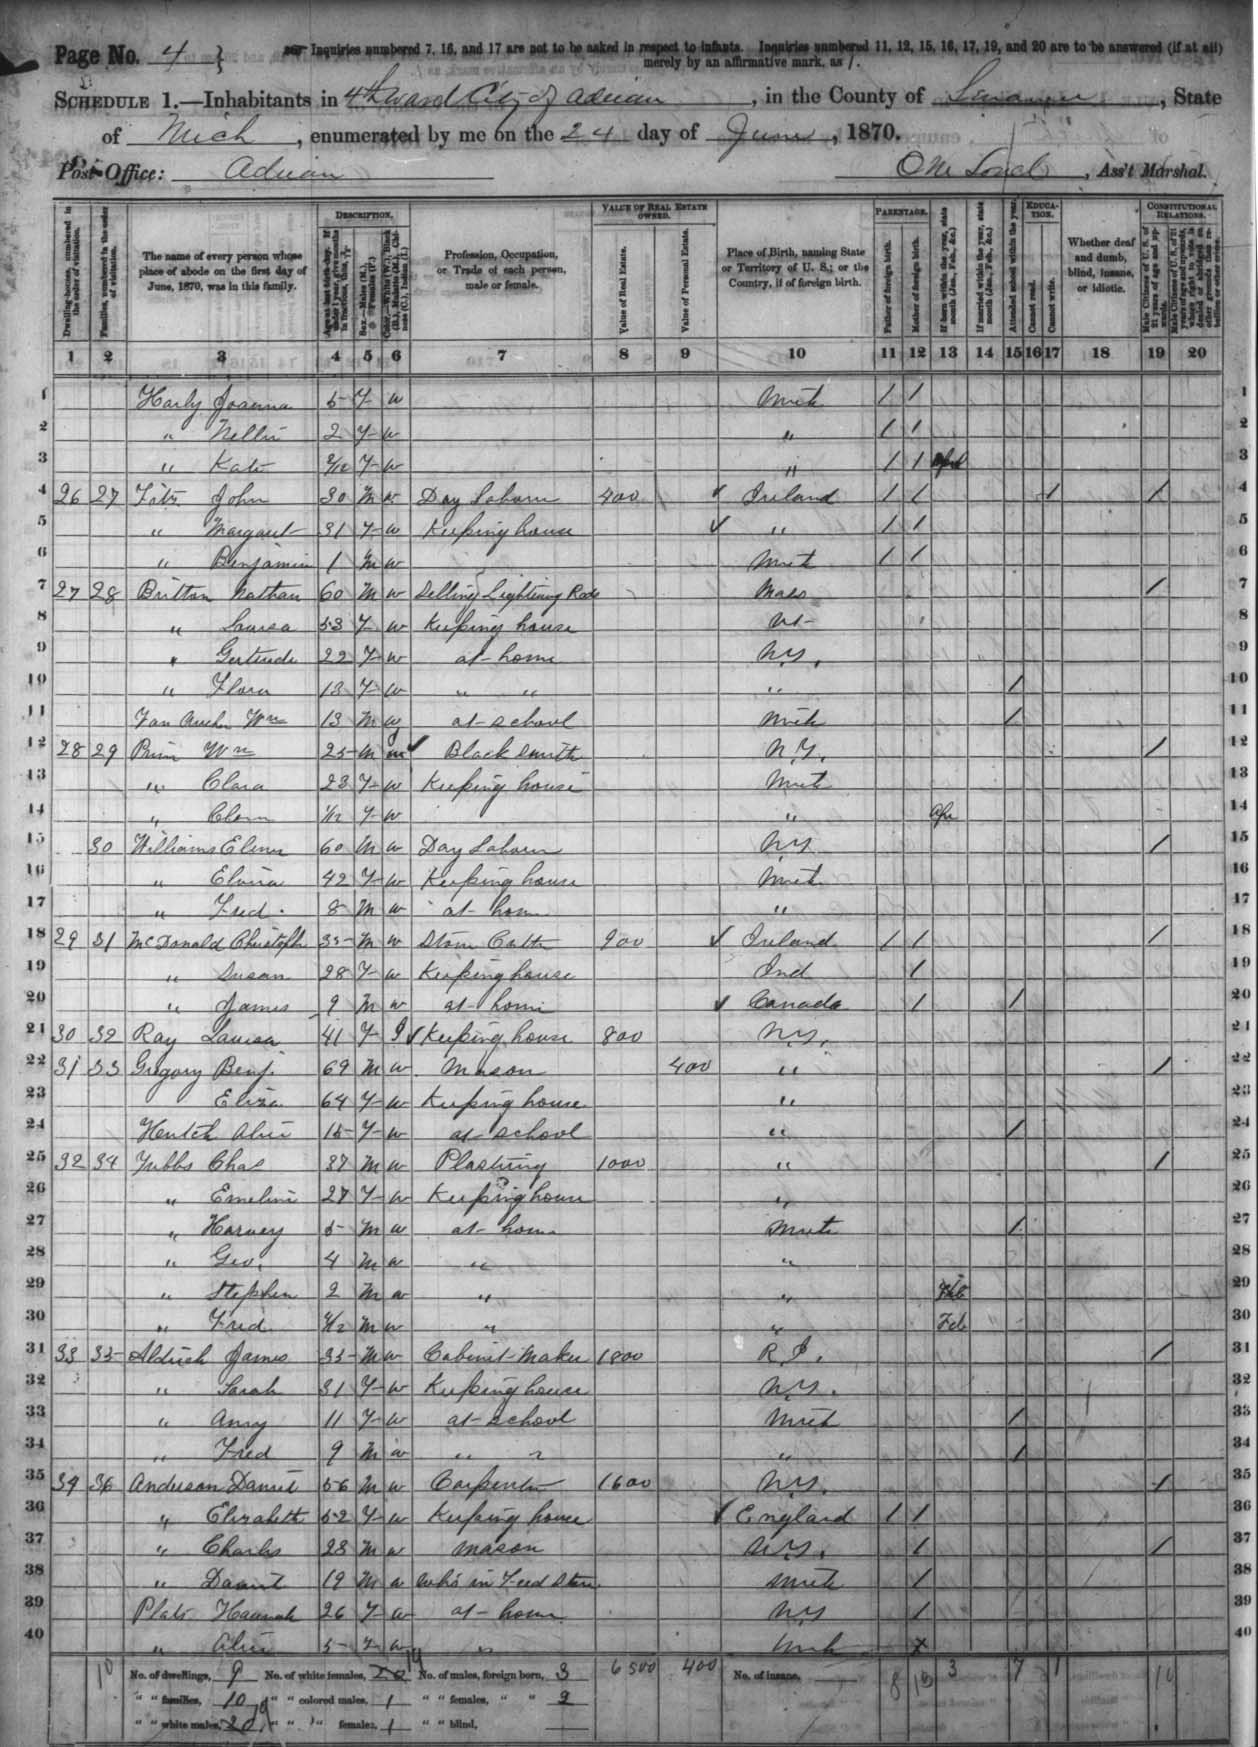 Page No. 4 } Inquiries numbered 7, 16, and 17 are not to be asked in respect to infants. Inquiries numbered 11, 12, 15, 16, 17, 19, and 20 are to be answered (if at all)
merely by an affirmative mark, as /.
SCHEDULE 1.—Inhabitants in 4th ward City of Adrian, in the County of Lenawee, State
of Mich, enumerated by me on the 24 day of June, 1870.
Post-Office: Adrian , Ass't Marshal.
DESCRIPTION. VALUE OF REAL ESTATE OWNED. PARENTAGE. EDUCATION. CONSTITUTIONAL RELATIONS.
Dwelling-houses, numbered in the order of visitation.
Families, numbered in the order of visitation.
The name of every person whose place of abode on the first day of June, 1870, was in this family.
Age at last birth-day. If under 1 year, give months in fractions, thus, 3/12
Sex.—Males (M.), Females (F.)
Color.—White (W.), Black (B.), Mulatto (M.), Chinese (C.), Indian (I.)
Profession, Occupation, or Trade of each person, male or female.
Value of Real Estate.
Value of Personal Estate.
Place of Birth, naming State or Territory of U. S.; or the Country, if of foreign birth.
Father of foreign birth.
Mother of foreign birth.
If born within the year, state month (Jan., Feb., &c.)
If married within the year, state month (Jan., Feb., &c.)
Attended school within the year.
Cannot read.
Cannot write.
Whether deaf and dumb, blind, insane, or idiotic.
Male Citizens of U. S. of 21 years of age and upwards.
Male Citizens of U. S. of 21 years of age and upwards, whose right to vote is denied or abridged on other grounds than rebellion or other crime.
1 2 3 4 5 6 7 8 9 10 11 12 13 14 15 16 17 18 19 20
1 Harly Joanna 5 F w Mich / / 1
2 " Nellie 2 F w " / / 2
3 " Kate 2/12 F w " / / Apl 3
4 26 27 Fitz John 30 M w Day Laborer 400 ✓ Ireland / / / / 4
5 " Margaret 31 F w Keeping house ✓ " / / 5
6 " Benjamin 1 M w Mich / / 6
7 27 28 Britton Nathan 60 M w Selling Lightning Rods Mass / 7
8 " Louisa 53 F w Keeping house Vt 8
9 " Gertrude 22 F w at home N.Y. 9
10 " Flora 13 F w " " " / 10
11 Wm 13 M w at school Mich / 11
12 28 29 Wm 25 M m ✓ Black smith N.Y. / 12
13 " Clara 23 F w Keeping house Mich 13
14 " 1/12 F w " Apr 14
15 30 Williams Elmer 60 M w Day Laborer N.Y. / 15
16 " Elvira 42 F w Keeping house Mich 16
17 " Fred. 8 M w at home " 17
18 29 31 McDonald Christoph 35 M w Stone Cutter 900 ✓ Ireland / / / 18
19 " Susan 28 F w Keeping house Ind / 19
20 " James 9 M w at home ✓ Canada / / 20
21 30 32 Ray Louisa 41 F I ✓ Keeping house 800 N.Y. 21
22 31 33 Gregory Benj. 69 M w Mason 400 " / 22
23 Eliza 64 F w Keeping house " 23
24 Alice 15 F w at school " / 24
25 32 34 Tubbs Chas 37 M w Plastering 1000 " / 25
26 " Emeline 27 F w Keeping house " 26
27 " Harvey 5 M w at home Mich / 27
28 " Geo. 4 M w " " 28
29 " Stephen 2 M w " " Feb 29
30 " Fred. 4/12 M w " " Feb 30
31 33 35 Aldrich James 35 M w Cabinet Maker 1800 R.I. / 31
32 " Sarah 31 F w Keeping house N.Y. 32
33 " Amy 11 F w at school Mich / 33
34 " Fred 9 M w " " " / 34
35 34 36 Anderson Daniel 56 M w Carpenter 1600 N.Y. / 35
36 " Elizabeth 52 F w Keeping house ✓ England / / 36
37 " Charles 28 M w Mason N.Y. / / 37
38 " Daniel 19 M w wks in Feed Store Mich / 38
39 Plats Hannah 26 F w at home N.Y. / 39
40 " Alice 5 F w " Mich x 40
10 No. of dwellings, 9 No. of white females, 20 19 No. of males, foreign born, 3 6500 400 No. of insane, 8 13 3 7 1 10
" " families, 10 " " colored males, 1 " " females, " " 2
" " white males, 20 19 " " " females, 1 " " blind,